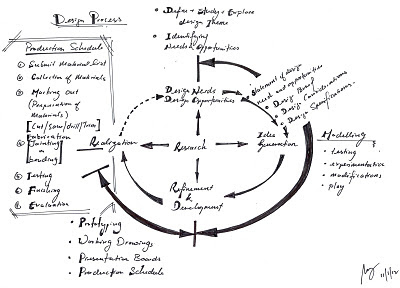 Design Process
Production Schedule
① Submit Material list
② Collection of Materials
③ Marking out
(Preparation of
Materials)
[Cut/saw/drill/
Fabrication
④ Jointing/
bending
⑤ Testing
⑥ Finishing
⑧ Evaluation
• Define + Study + Explore
design Theme
• Identifying
Needs + Opportunities
Design Needs
Design Opportunities
• Statement of design
need and opportunities
• Design Brief
• Design Considerations
• Design Specifications.
Realization
Research
Idea
Generation
Refinement
&
Development
Modelling
• testing
• experimentative
• modifications
• play
• Prototyping
• Working Drawings
• Presentation Boards
• Production Schedule